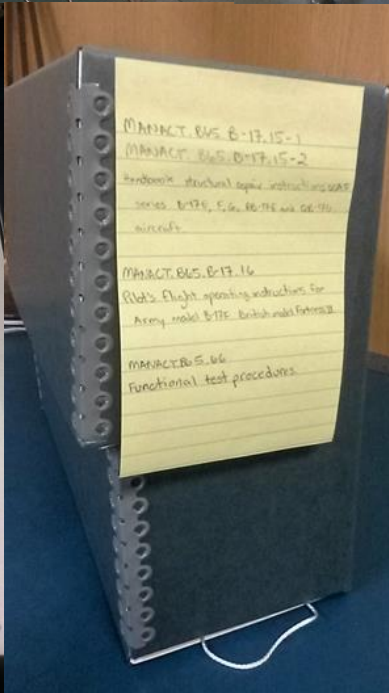 MANACT.B65.B-17.15-1
MANACT.B65.B-17.15-2
Handbook structural repair instructions USAF
series B-17E, F, G, and
aircraft
MANACT.B65.B-17.16
Pilot's flight operating instructions for
Army model B-17F British model Fortress II
MANACT.B65.66
Functional test procedures